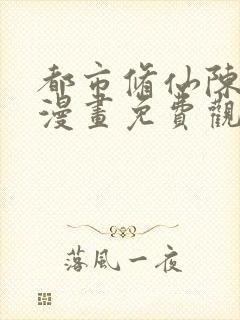 都市脩仙陳
漫畫免費觀
落風一夜